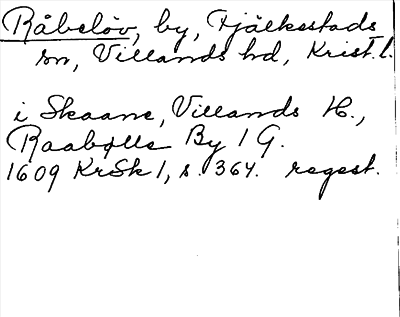 Råbeløv, by, Fjälkestads
sn, Villands hd, Krist. l.
i Skaane, Villands H.,
Raabølle By 1 G.
1609 KrSk 1, s. 364. regest.